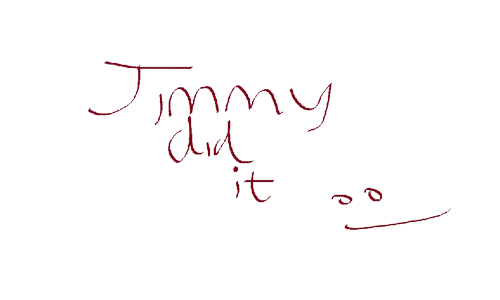 Jimmy
did
it